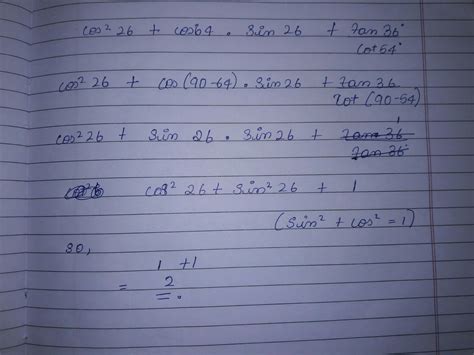 cos² 26 + cos64 . sin 26 + tan 36°
cot 54°
cos² 26 + cos (90-64) . sin 26 + tan 36
cot (90-54)
cos² 26 + sin 26 . sin 26 + tan 36 1
tan 36
cos² 26 + sin² 26 + 1
(sin² + cos² = 1)
so,
1 + 1
= 2